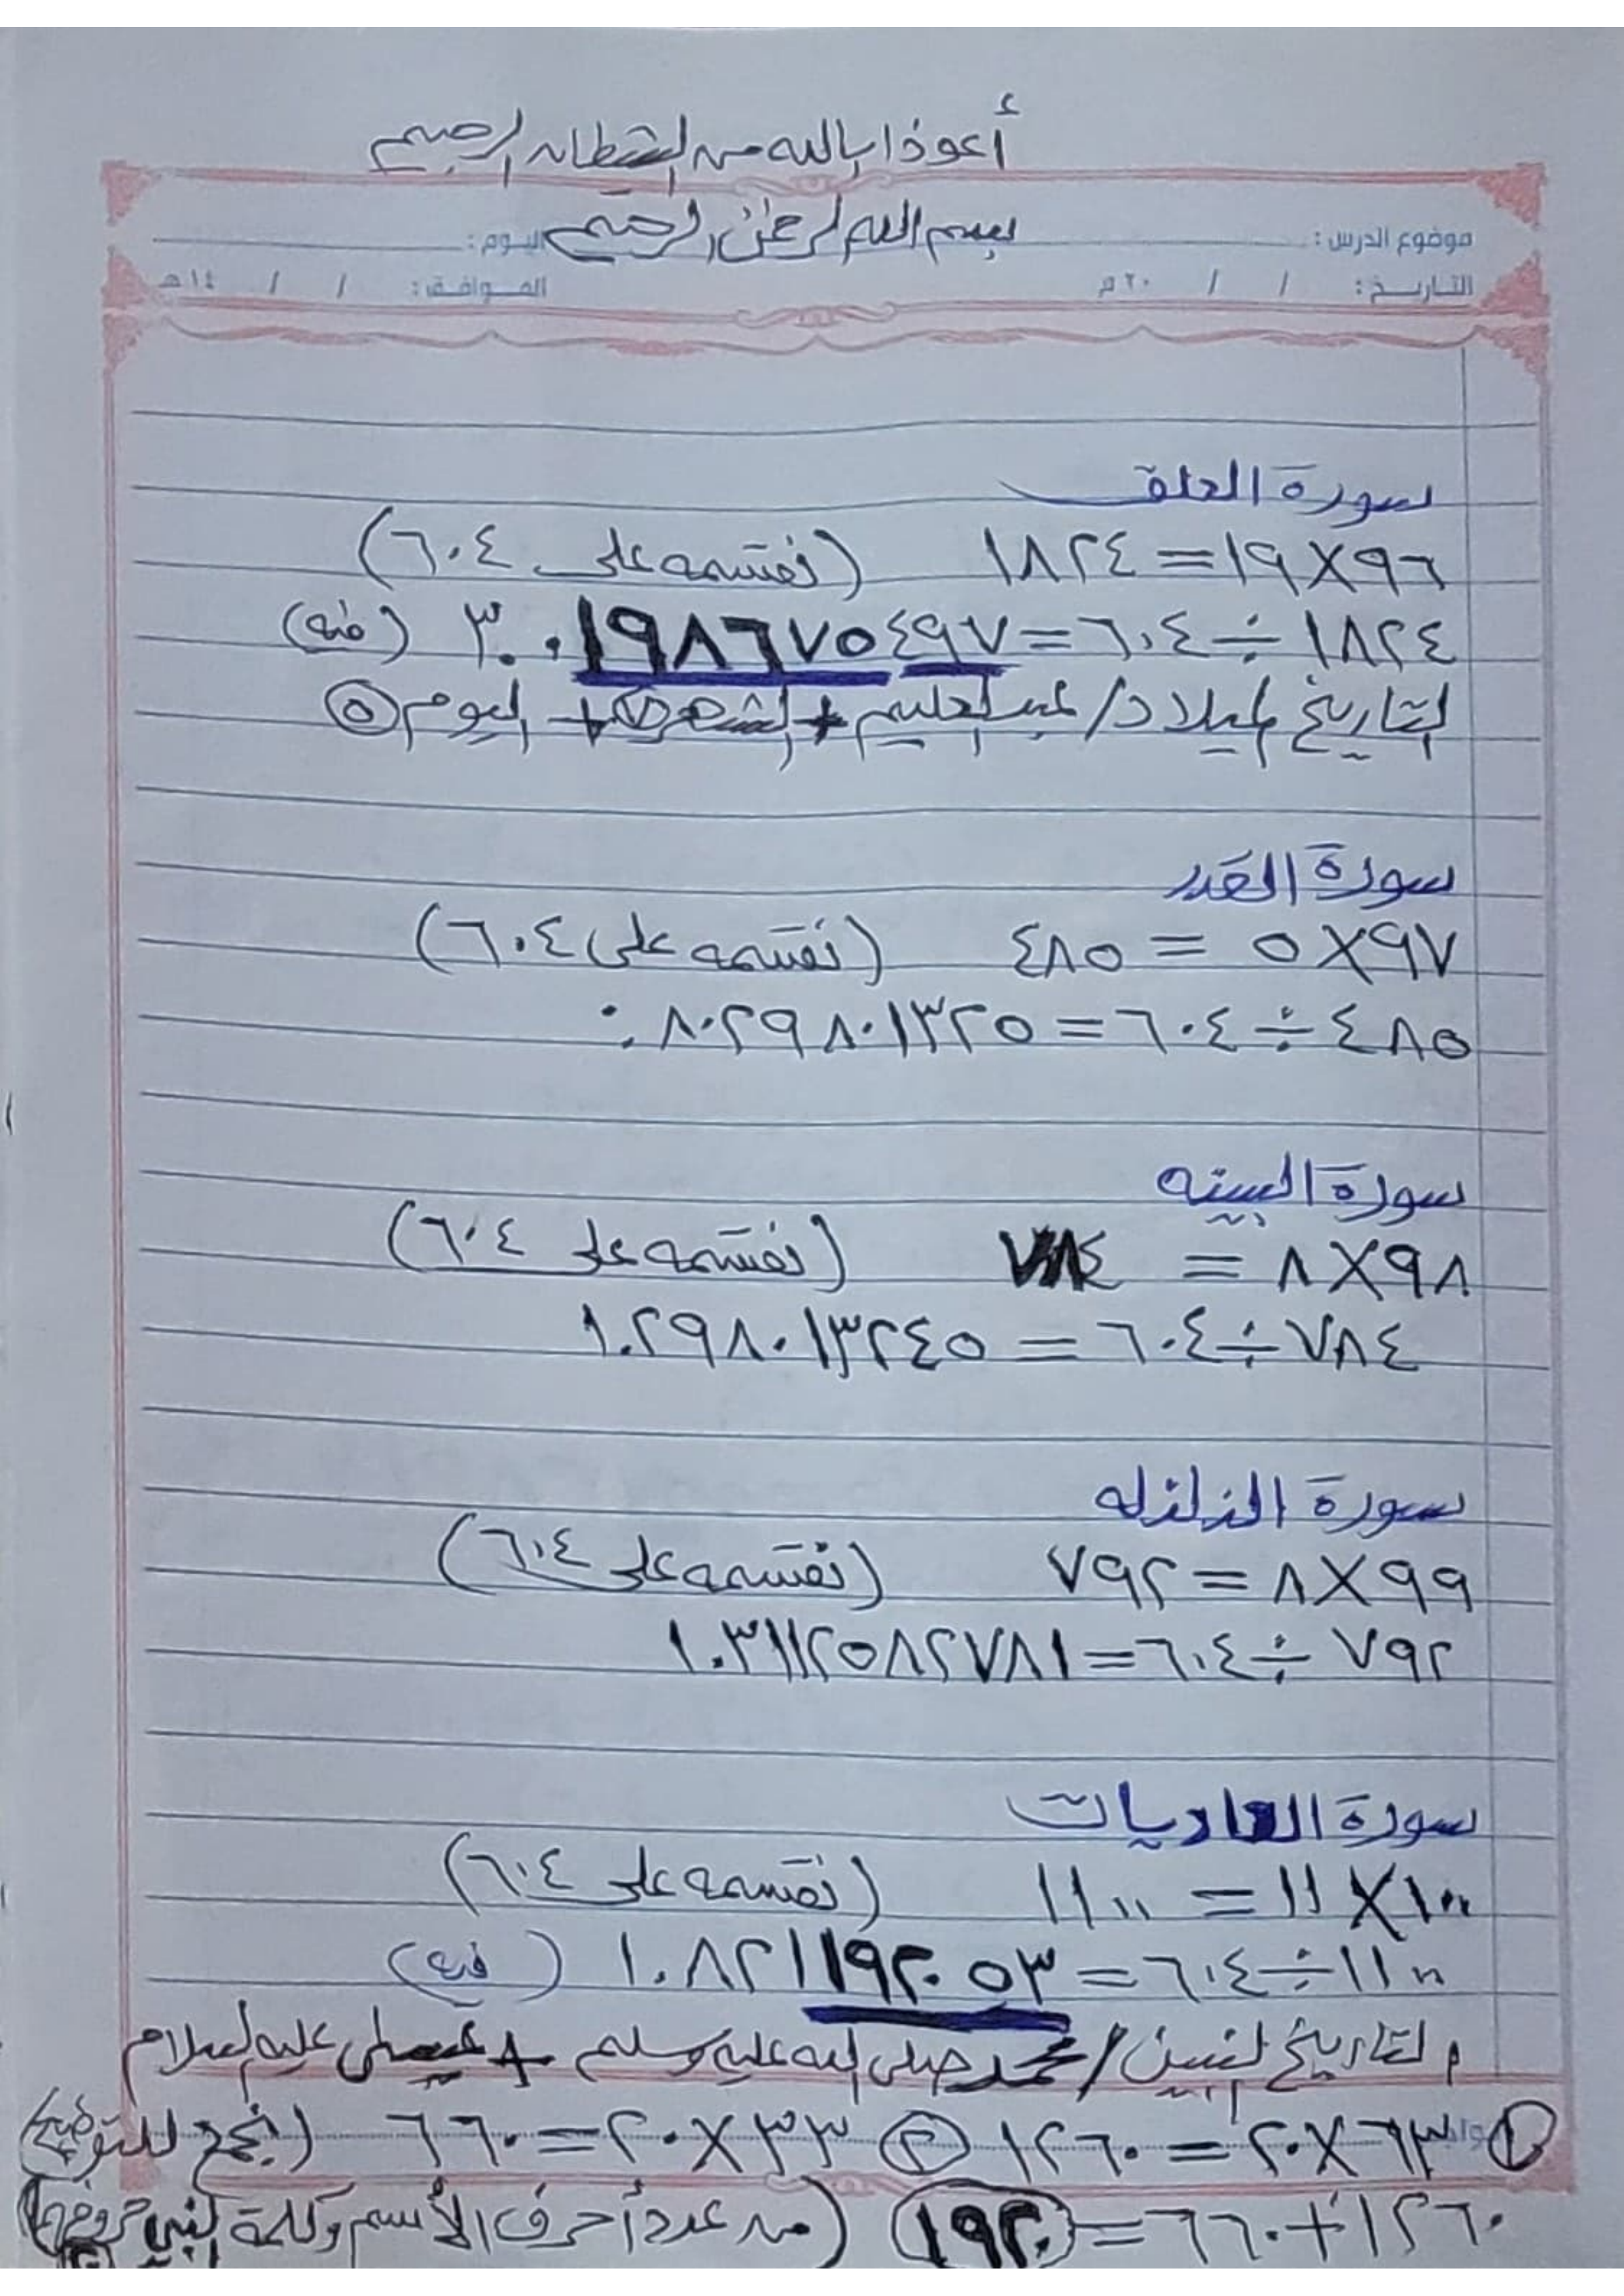 أعوذ بالله من الشيطان الرجيم
بسم الله الرحمن الرحيم
موضوع الدرس : اليوم :
التاريخ : / / ٢٠ م الموافق : / / ١٤ هـ
سورة العلق
٩٦×١٩=١٨٢٤ (نقسمه على ٦٠٤)
١٨٢٤÷٦٠٤=٣.٠١٩٨٦٧٥٤٩٧ (فيه)
التاريخ لميلاد/عبدالحليم + الشهر ٧ + اليوم ٥
سورة القدر
٩٧×٥ = ٤٨٥ (نقسمه على ٦٠٤)
٤٨٥÷٦٠٤=٠.٨٠٢٩٨٠١٣٢٥
سورة البينه
٩٨×٨ = ٧٨٤ (نقسمه على ٦٠٤)
٧٨٤÷٦٠٤ = ١.٢٩٨٠١٣٢٤٥
سورة الزلزله
٩٩×٨=٧٩٢ (نقسمه على ٦٠٤)
٧٩٢÷٦٠٤=١.٣١١٢٥٨٢٧٨١
سورة العاديات
١٠٠×١١ = ١١٠٠ (نقسمه على ٦٠٤)
١١٠٠÷٦٠٤=١.٨٢١١٩٢٠٥٣ (فيه)
التاريخ لنبيين/محمد صلى الله عليه وسلم + عيسى عليه السلام
١ ٦٣×٢٠=١٢٦٠ ٢ ٣٣×٢٠=٦٦٠ (نجمع للتوضيح)
١٢٦٠+٦٦٠=١٩٢٠ (من عدد أحرف الأسم وكلمة النبي